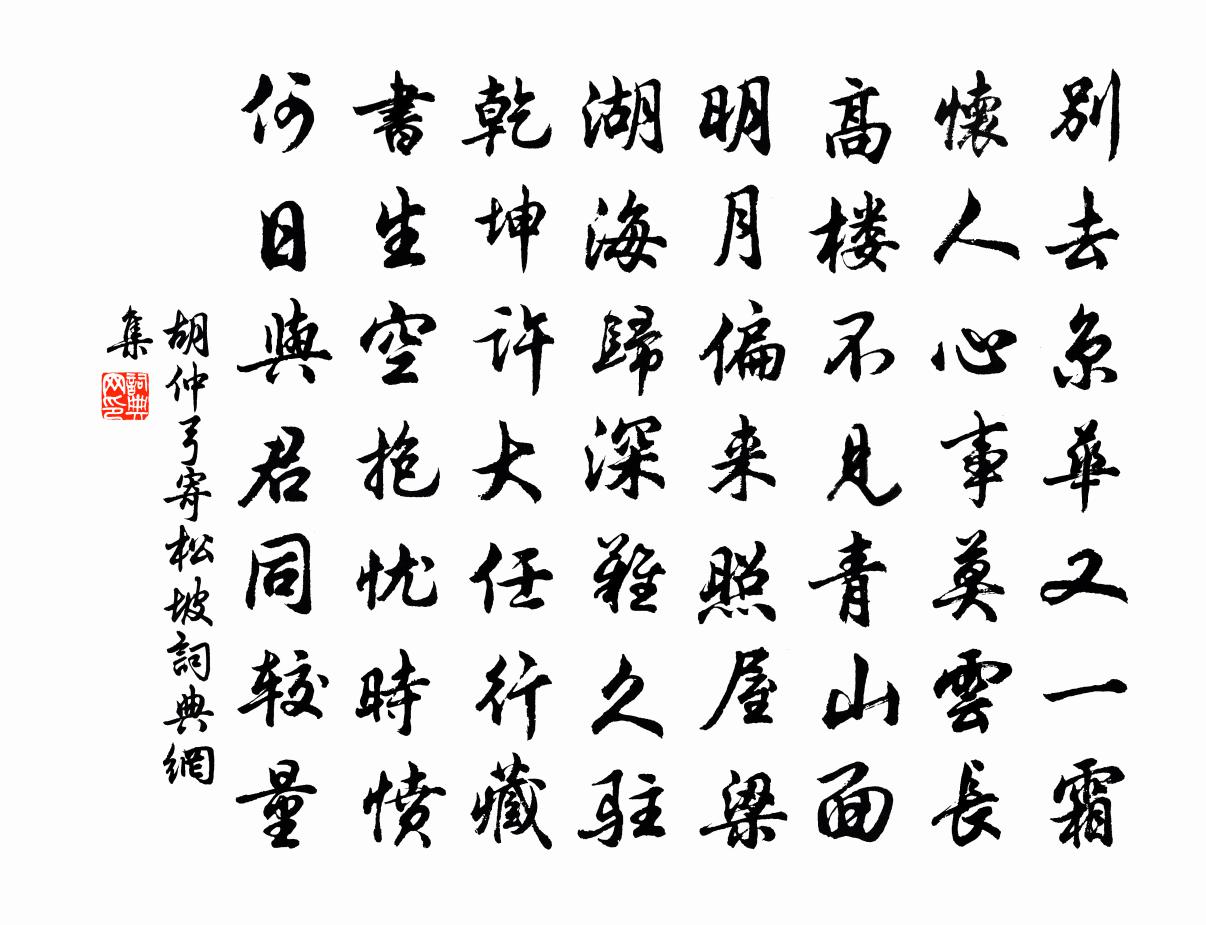 别去京華又一霜
懷人心事莫雲長
高楼不見青山面
明月偏来照屋梁
湖海歸深難久駐
乾坤許大任行藏
書生空抱忧時愤
何日與君同较量
胡仲弓寄松坡詞典網
集
詞典网印